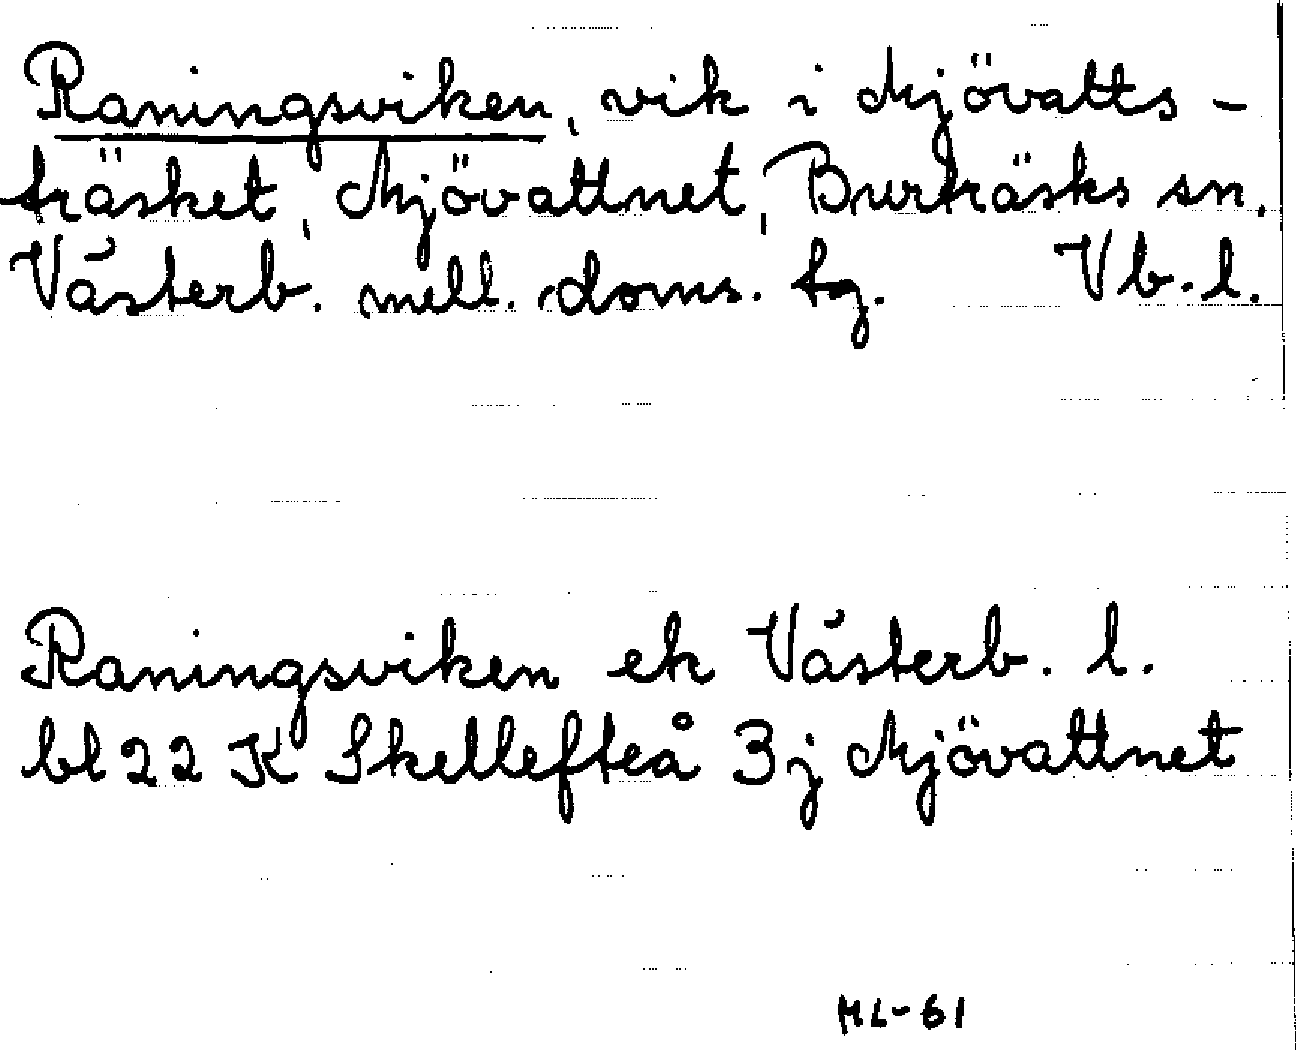 Raningsviken, vik i Mjövatts-
träsket, Mjövattnet, Burträsks sn.
Västerb. mell. doms. tg. Vb. l.
Raningsviken ek Västerb. l.
bl 22 K Skellefteå 3 j Mjövattnet
ML-61